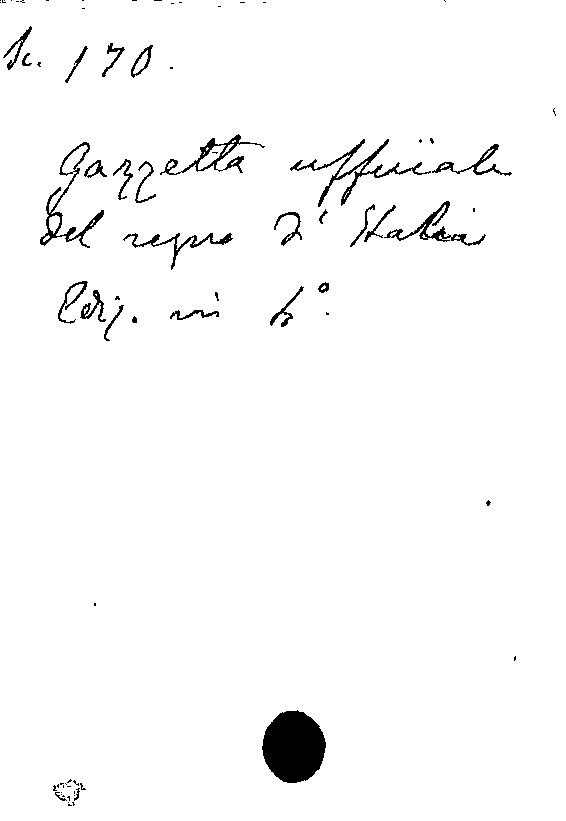 Sc. 170.
Gazzetta ufficiale
del regno d'Italia
Ediz. in 4°.